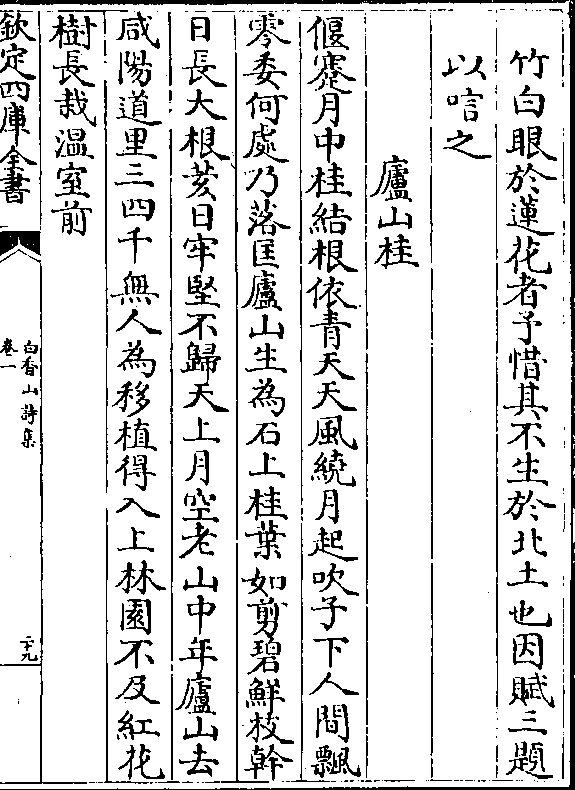 竹白眼於蓮花者予惜其不生於北土也因賦三題
以唁之
廬山桂
偃蹇月中桂結根依青天天風繞月起吹子下人間飄
零委何處乃落匡廬山生為石上桂葉如剪碧鮮枝幹
日長大根荄日牢堅不歸天上月空老山中年廬山去
咸陽道里三四千無人為移植得入上林園不及紅花
樹長栽溫室前
欽定四庫全書
白香山詩集
卷一
二十九